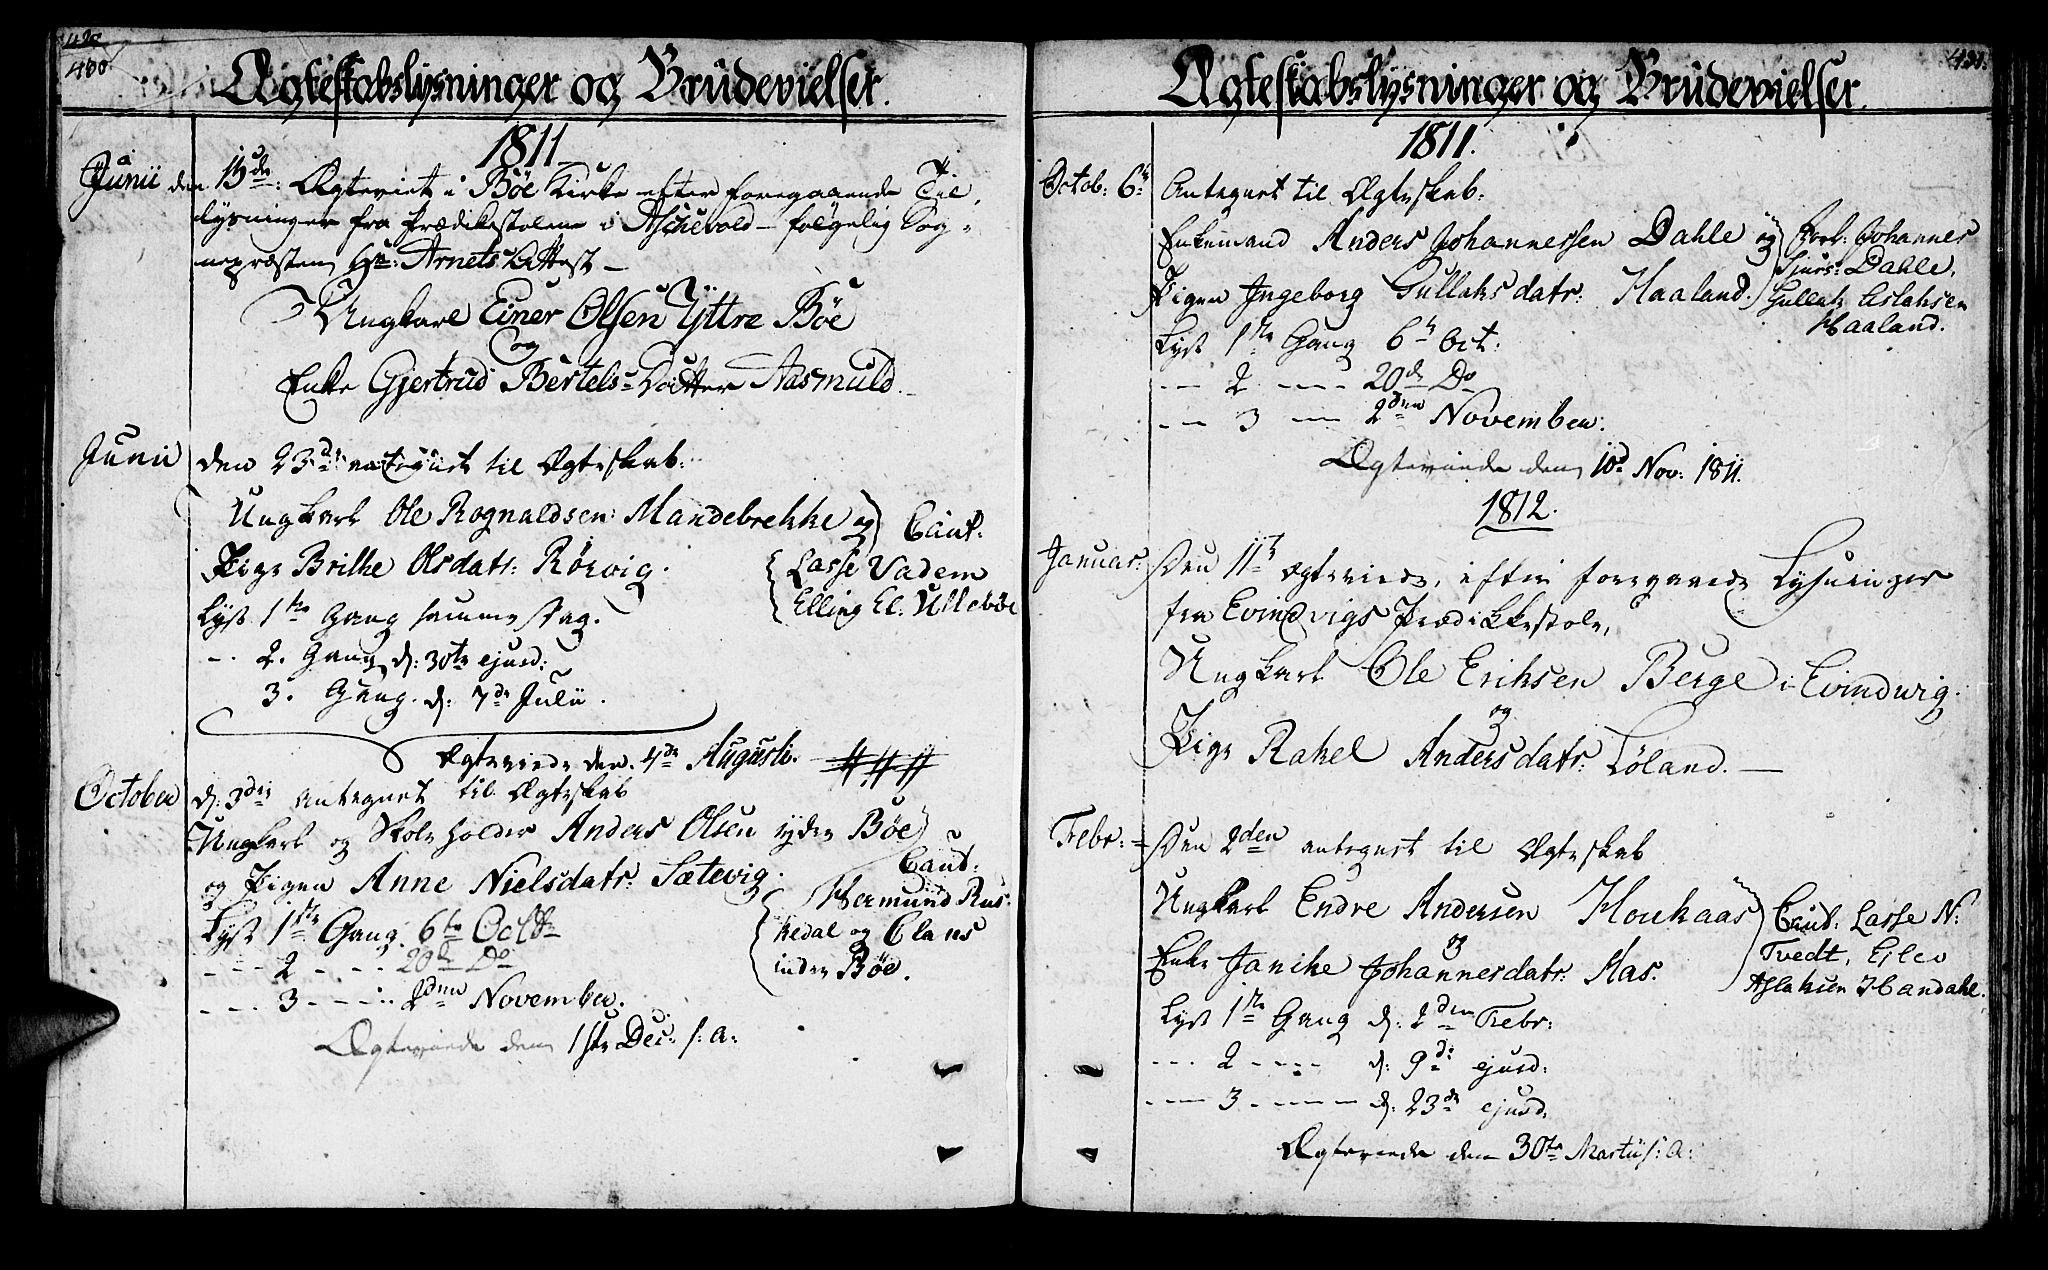 480
Ægteskabslysninger og Brudevielser.
1811
Junii den 13de: Ægteviet i Böe Kirke efter foregaaende Til,
lysninger fra Prædikestolene i Aschevold – følgelig Sog-
nepræsten Hr: Arnets Attest –
Ungkarl Einer Olsen Yttre Böe
og
Enke Gjertrud Bertels-Datter Aasmuld.
Junii den 23de antegnet til Ægteskab:
Ungkarl Ole Rognaldsen: Mandebrekke og
Caut:
Pige Brithe Olsdatr: Rörvig.
Lasse Vadem
Elling El. Ullebøe
Lyst 1te Gang samme Dag.
-. 2. Gang d: 30te ejusd:
3. Gang. d: 7de Julii.
Ægteviede den 4de Augusti.
October d: 3die antegnet til Ægteskab
Ungkarl og Skoleholder Anders Olsen ydre Böe
Caut:
og Pigen Anne Nielsdatr: Sætevig.
Hermund Rus-
kedal og Clans
indre Böe.
Lyst 1te Gang. 6te Octb
--- 2 ---- 20de Do
--- 3 ---- 2den November.
Ægteviede den 1ste Dec: s: a:
481.
Ægteskabslysninger og Brudevielser.
1811.
Octob: 6te Antegnet til Ægteskab:
Enkemand Anders Johannessen Dahle og
Forl: Johannes
Sjurs: Dahle,
Pigen Ingeborg Gullaksdatr: Haaland.
Gullak Aslaksen
Haaland.
Lyst 1te Gang 6te Oct:
--- 2 ---- 20de Do
--- 3 --- 2den November.
Ægteviede den 10de Nov: 1811.
1812.
Januar: Den 11te Ægteviede, efter foregaaende Lysninger
fra Evindvigs Prædikkestole,
Ungkarl Ole Eriksen Berge i Evindwig.
og
Pige Rakel Andersdatr: Löland. —
Febr: Den 2den antegnet til Ægteskab
Ungkarl Endre Andersen Houkaas
Caut: Lasse N:
og
Tvedt, Ejlev
Enke Janike Johannesdatr: Aas.
Aslaksen Handahl.
Lyst 1te Gang d: 2den Febr:
--- 2 ---- d: 9de ejusd:
--- 3 ---- d: 23de ejusd:
Ægteviede den 30te Martii s: a: